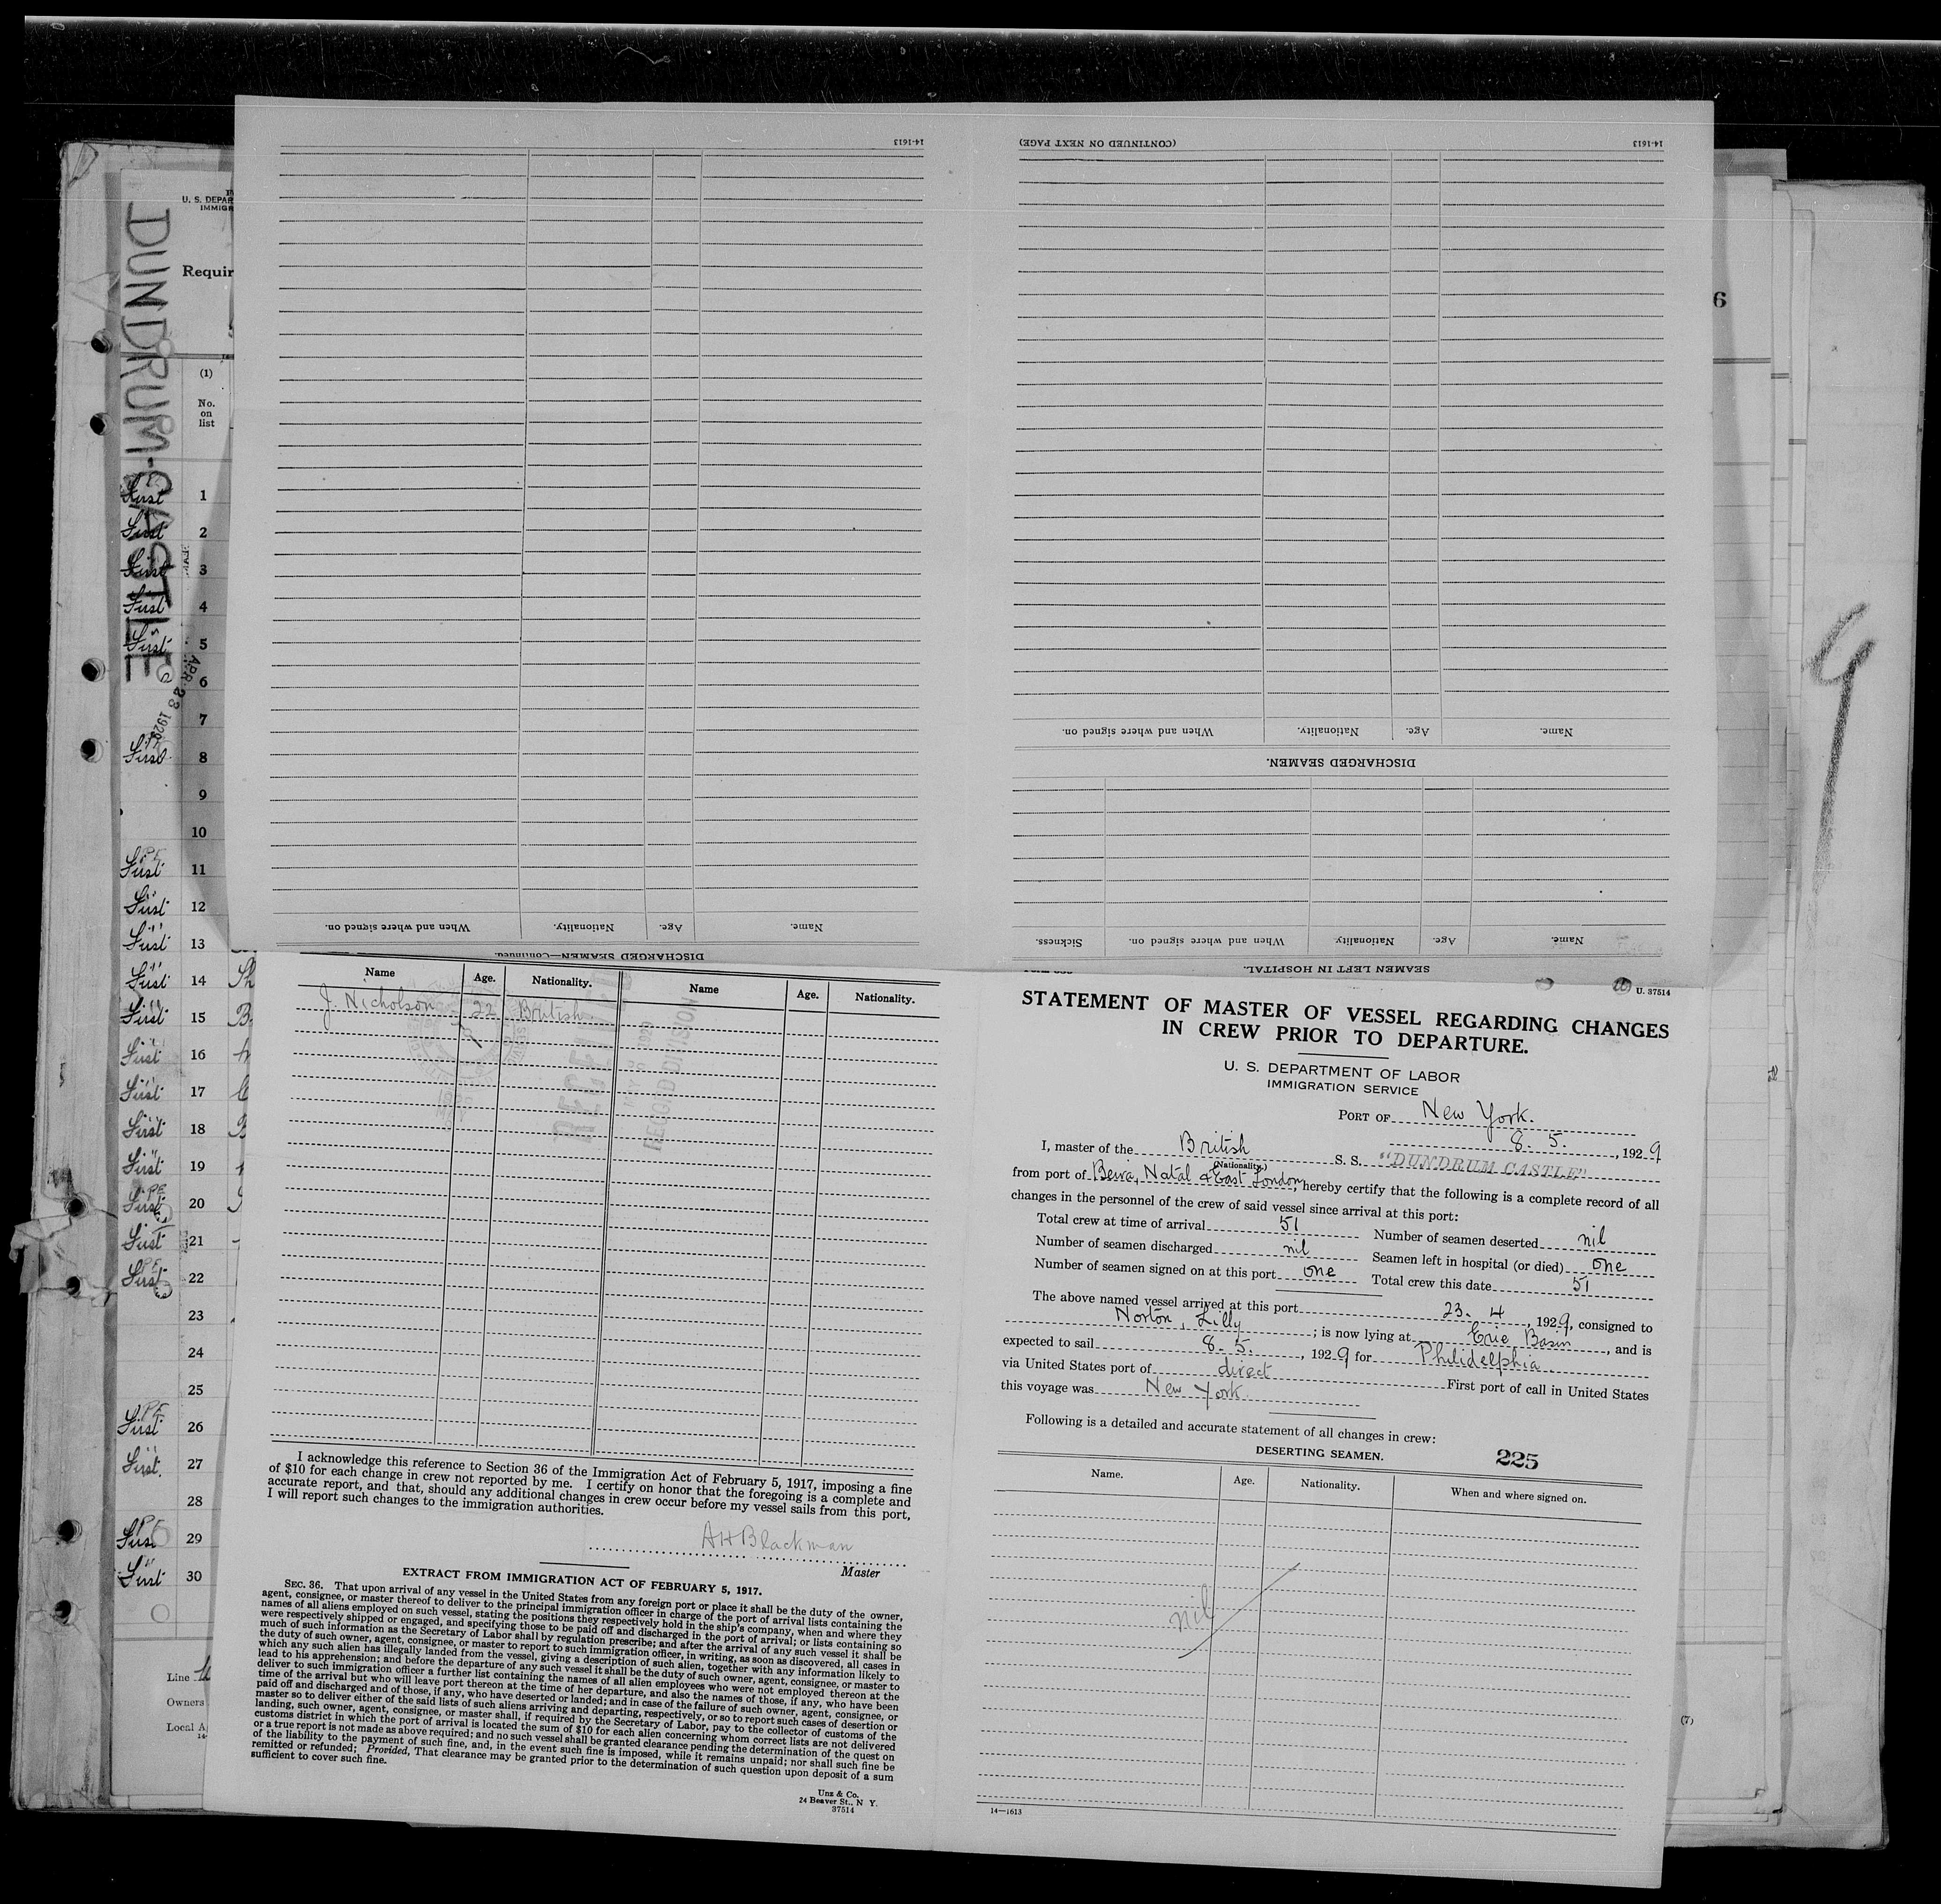 14-1613
(CONTINUED ON NEXT PAGE)
14-1613
DUNDRUM CASTLE
U. S. DEPAR
IMMIGR
Requir
(1)
No.
on
list
First 1
First 2
First 3
First 4
First 5
6
7
First 8
9
10
First 11
First 12
First 13
First 14
First 15
First 16
First 17
First 18
First 19
First 20
First 21
First 22
23
24
25
First 26
First 27
28
First 29
First 30
APR 23 1929
Line
Owners
Local A
6
9
(7)
When and where signed on. Nationality. Age. Name.
DISCHARGED SEAMEN.
Sickness. When and where signed on. Nationality. Age. Name.
SEAMEN LEFT IN HOSPITAL.
When and where signed on. Nationality. Age. Name.
DISCHARGED SEAMEN—Continued.
Name Age. Nationality. Name Age. Nationality.
J. Nicholson 22 British
RECEIVED
RECORD DIVISION
I acknowledge this reference to Section 36 of the Immigration Act of February 5, 1917, imposing a fine
of $10 for each change in crew not reported by me. I certify on honor that the foregoing is a complete and
accurate report, and that, should any additional changes in crew occur before my vessel sails from this port,
I will report such changes to the immigration authorities.
AHBlackman
Master
EXTRACT FROM IMMIGRATION ACT OF FEBRUARY 5, 1917.
SEC. 36. That upon arrival of any vessel in the United States from any foreign port or place it shall be the duty of the owner,
agent, consignee, or master thereof to deliver to the principal immigration officer in charge of the port of arrival lists containing the
names of all aliens employed on such vessel, stating the positions they respectively hold in the ship's company, when and where they
were respectively shipped or engaged, and specifying those to be paid off and discharged in the port of arrival; or lists containing so
much of such information as the Secretary of Labor shall by regulation prescribe; and after the arrival of any such vessel it shall be
the duty of such owner, agent, consignee, or master to report to such immigration officer, in writing, as soon as discovered, all cases in
which any such alien has illegally landed from the vessel, giving a description of such alien, together with any information likely to
lead to his apprehension; and before the departure of any such vessel it shall be the duty of such owner, agent, consignee, or master to
deliver to such immigration officer a further list containing the names of all alien employees who were not employed thereon at the
time of the arrival but who will leave port thereon at the time of her departure, and also the names of those, if any, who have been
paid off and discharged and of those, if any, who have deserted or landed; and in case of the failure of such owner, agent, consignee, or
master so to deliver either of the said lists of such aliens arriving and departing, respectively, or so to report such cases of desertion or
landing, such owner, agent, consignee, or master shall, if required by the Secretary of Labor, pay to the collector of customs of the
customs district in which the port of arrival is located the sum of $10 for each alien concerning whom correct lists are not delivered
or a true report is not made as above required; and no such vessel shall be granted clearance pending the determination of the quest on
of the liability to the payment of such fine, and, in the event such fine is imposed, while it remains unpaid; nor shall such fine be
remitted or refunded; Provided, That clearance may be granted prior to the determination of such question upon deposit of a sum
sufficient to cover such fine.
Unz & Co.
24 Beaver St., N Y.
37514
U. 37514
STATEMENT OF MASTER OF VESSEL REGARDING CHANGES
IN CREW PRIOR TO DEPARTURE.
U. S. DEPARTMENT OF LABOR
IMMIGRATION SERVICE
PORT OF New York.
8. 5. , 1929
I, master of the British S. S. "DUNDRUM CASTLE"
(Nationality.)
from port of Beira, Natal & East London, hereby certify that the following is a complete record of all
changes in the personnel of the crew of said vessel since arrival at this port:
Total crew at time of arrival 51 Number of seamen deserted nil
Number of seamen discharged nil Seamen left in hospital (or died) one
Number of seamen signed on at this port one Total crew this date 51
The above named vessel arrived at this port 23. 4 , 1929, consigned to
Norton, Lilly ; is now lying at Erie Basin , and is
expected to sail 8. 5. , 1929 for Philidelphia
via United States port of direct First port of call in United States
this voyage was New York.
Following is a detailed and accurate statement of all changes in crew:
DESERTING SEAMEN. 225
Name. Age. Nationality. When and where signed on.
nil
14—1613